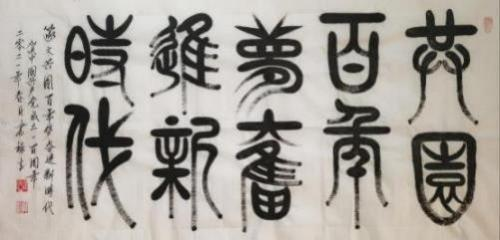 共圓
百年
夢奮
進新
時代
篆文共圆百年梦奋进新时代
中国共产党成立一百周年
二零二一年春月